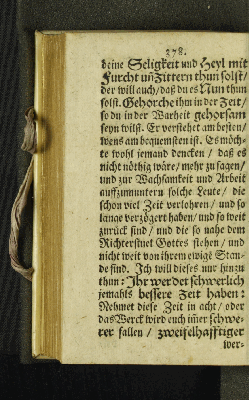 378.
deine Seligkeit und Heyl mit
Furcht uñ Zittern thun solst/
der will auch/ daß du es Nun thun
solst. Gehorche ihm in der Zeit/
so du in der Warheit gehorsam
seyn wilst. Er verstehet am besten/
wens am bequemsten ist. Es möch-
te wohl jemand dencken/ daß es
nicht nöthig wäre/ mehr zu sagen/
und zur Wachsamkeit und Arbeit
auffzumuntern solche Leute/ die
schon viel Zeit verlohren/ und so
lange verzögert haben/ und so weit
zurück sind/ und die so nahe dem
Richterstuel Gottes stehen/ und
nicht weit von ihrem ewige Stan-
de sind. Ich will dieses nur hinzu
thun: Ihr werdet schwerlich
jemahls bessere Zeit haben:
Nehmet diese Zeit in acht/ oder
das Werck wird euch im̃er schwe-
rer fallen/ zweifelhafftiger
wer-